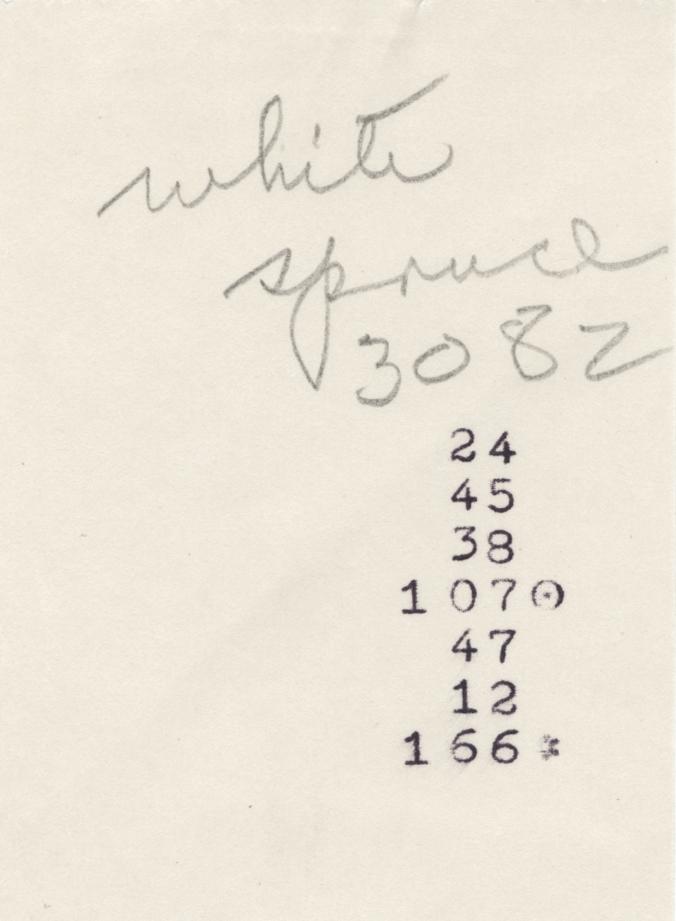 white
spruce
3082
24
45
38
107⊙
47
12
166*